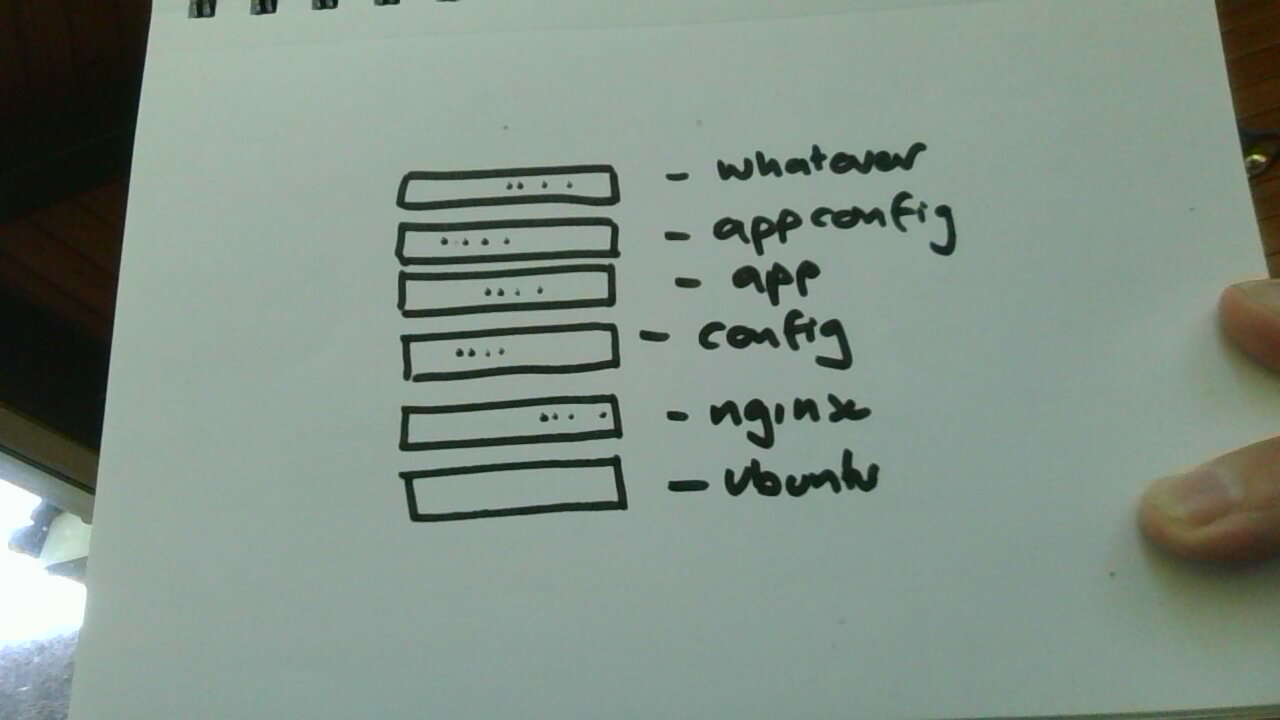 - whatever
- appconfig
- app
- config
- nginx
- ubuntu